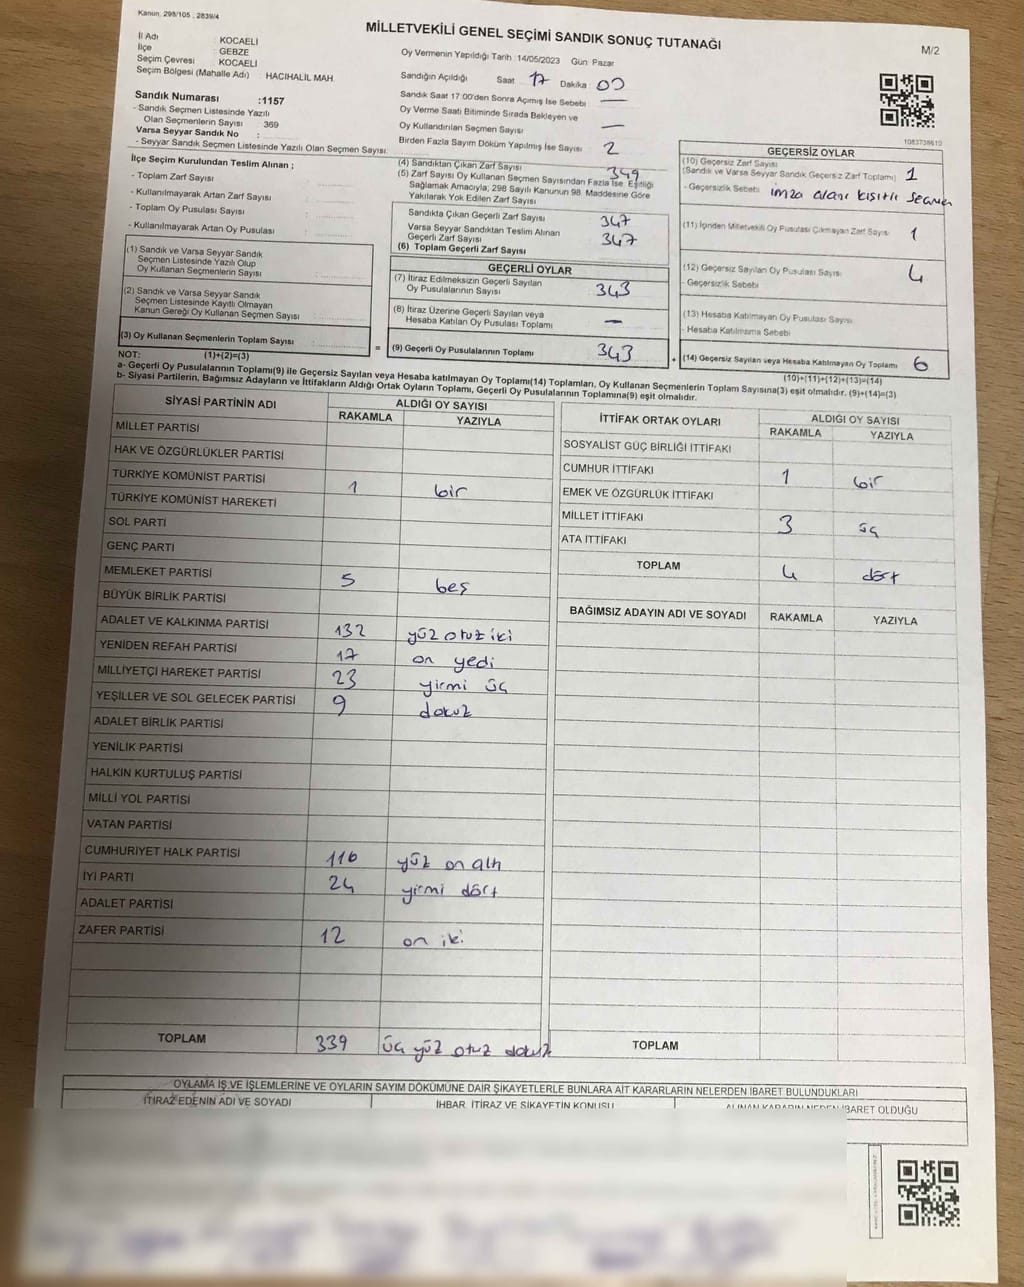 Kanun, 298/105 ; 2839/4
MİLLETVEKİLİ GENEL SEÇİMİ SANDIK SONUÇ TUTANAĞI
M/2
İl Adı : KOCAELİ
İlçe : GEBZE
Seçim Çevresi : KOCAELİ
Seçim Bölgesi (Mahalle Adı) : HACIHALİL MAH.
Sandık Numarası :1157
- Sandık Seçmen Listesinde Yazılı
Olan Seçmenlerin Sayısı : 369
Varsa Seyyar Sandık No :
- Seyyar Sandık Seçmen Listesinde Yazılı Olan Seçmen Sayısı:
Oy Vermenin Yapıldığı Tarih :14/05/2023 Gün :Pazar
Sandığın Açıldığı Saat 17 Dakika 00
Sandık Saat 17:00'den Sonra Açımış İse Sebebi —
Oy Verme Saati Bitiminde Sırada Bekleyen ve
Oy Kullandırılan Seçmen Sayısı —
Birden Fazla Sayım Döküm Yapılmış İse Sayısı 2
1083738610
İlçe Seçim Kurulundan Teslim Alınan ;
- Toplam Zarf Sayısı :
- Kullanılmayarak Artan Zarf Sayısı :
- Toplam Oy Pusulası Sayısı :
- Kullanılmayarak Artan Oy Pusulası :
(1) Sandık ve Varsa Seyyar Sandık
Seçmen Listesinde Yazılı Olup
Oy Kullanan Seçmenlerin Sayısı :
(2) Sandık ve Varsa Seyyar Sandık
Seçmen Listesinde Kayıtlı Olmayan
Kanun Gereği Oy Kullanan Seçmenlerin Sayısı :
(3) Oy Kullanan Seçmenlerin Toplam Sayısı :
(1)+(2)=(3)
(4) Sandıktan Çıkan Zarf Sayısı 349
(5) Zarf Sayısı Oy Kullanan Seçmen Sayısından Fazla İse, Eşitliği
Sağlamak Amacıyla, 298 Sayılı Kanunun 98. Maddesine Göre
Yakılarak Yok Edilen Zarf Sayısı
Sandıkta Çıkan Geçerli Zarf Sayısı 347
Varsa Seyyar Sandıktan Teslim Alınan
Geçerli Zarf Sayısı 347
(6) Toplam Geçerli Zarf Sayısı
GEÇERLİ OYLAR
(7) İtiraz Edilmeksizin Geçerli Sayılan
Oy Pusulalarının Sayısı 343
(8) İtiraz Üzerine Geçerli Sayılan veya
Hesaba Katılan Oy Pusulası Toplamı —
= (9) Geçerli Oy Pusulalarının Toplamı 343
GEÇERSİZ OYLAR
(10) Geçersiz Zarf Sayısı
(Sandık ve Varsa Seyyar Sandık Geçersiz Zarf Toplamı) 1
- Geçersizlik Sebebi imza alanı kısıtlı seçmen
(11) İçinden Milletvekili Oy Pusulası Çıkmayan Zarf Sayısı 1
(12) Geçersiz Sayılan Oy Pusulası Sayısı 4
- Geçersizlik Sebebi
(13) Hesaba Katılmayan Oy Pusulası Sayısı
- Hesaba Katılmama Sebebi
+ (14) Geçersiz Sayılan veya Hesaba Katılmayan Oy Toplamı 6
(10)+(11)+(12)+(13)=(14)
NOT:
a- Geçerli Oy Pusulalarının Toplamı(9) ile Geçersiz Sayılan veya Hesaba katılmayan Oy Toplamı(14) Toplamları, Oy Kullanan Seçmenlerin Toplam Sayısına(3) eşit olmalıdır. (9)+(14)=(3)
b- Siyasi Partilerin, Bağımsız Adayların ve İttifakların Aldığı Ortak Oyların Toplamı, Geçerli Oy Pusulalarının Toplamına(9) eşit olmalıdır.
SİYASİ PARTİNİN ADI ALDIĞI OY SAYISI
RAKAMLA YAZIYLA
MİLLET PARTİSİ
HAK VE ÖZGÜRLÜKLER PARTİSİ
TÜRKİYE KOMÜNİST PARTİSİ 1 bir
TÜRKİYE KOMÜNİST HAREKETİ
SOL PARTİ
GENÇ PARTİ
MEMLEKET PARTİSİ 5 beş
BÜYÜK BİRLİK PARTİSİ
ADALET VE KALKINMA PARTİSİ 132 yüz otuz iki
YENİDEN REFAH PARTİSİ 17 on yedi
MİLLİYETÇİ HAREKET PARTİSİ 23 yirmi üç
YEŞİLLER VE SOL GELECEK PARTİSİ 9 dokuz
ADALET BİRLİK PARTİSİ
YENİLİK PARTİSİ
HALKIN KURTULUŞ PARTİSİ
MİLLİ YOL PARTİSİ
VATAN PARTİSİ
CUMHURİYET HALK PARTİSİ 116 yüz on altı
İYİ PARTİ 24 yirmi dört
ADALET PARTİSİ
ZAFER PARTİSİ 12 on iki
TOPLAM 339 üç yüz otuz dokuz
İTTİFAK ORTAK OYLARI ALDIĞI OY SAYISI
RAKAMLA YAZIYLA
SOSYALİST GÜÇ BİRLİĞİ İTTİFAKI
CUMHUR İTTİFAKI 1 bir
EMEK VE ÖZGÜRLÜK İTTİFAKI
MİLLET İTTİFAKI 3 üç
ATA İTTİFAKI
TOPLAM 4 dört
BAĞIMSIZ ADAYIN ADI VE SOYADI RAKAMLA YAZIYLA
TOPLAM
OYLAMA İŞ VE İŞLEMLERİNE VE OYLARIN SAYIM DÖKÜMÜNE DAİR ŞİKAYETLERLE BUNLARA AİT KARARLARIN NELERDEN İBARET BULUNDUKLARI
İTİRAZ EDENİN ADI VE SOYADI İHBAR, İTİRAZ VE ŞİKAYETİN KONUSU ALINAN KARARIN NEDEN İBARET OLDUĞU